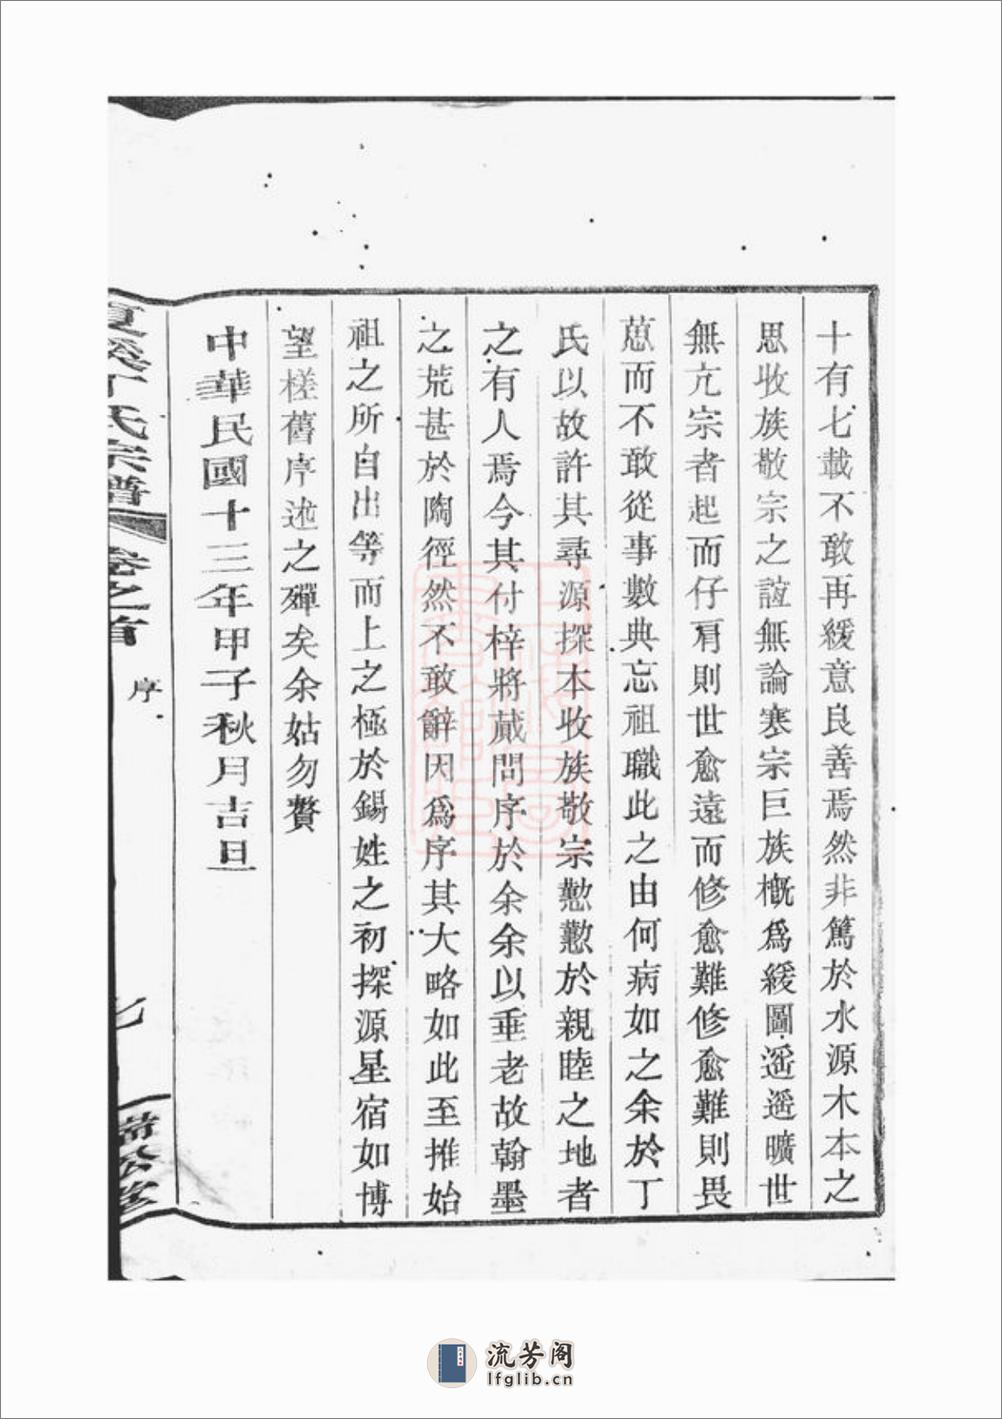 十有七載不敢再緩意良善焉然非篤於水源木本之
思收族敬宗之誼無論寒宗巨族槪爲緩圖遥遥曠世
無亢宗者起而仔肩則世愈遠而修愈難修愈難則畏
葸而不敢從事數典忘祖職此之由何病如之余於丁
氏以故許其尋源探本收族敬宗懃懃於親睦之地者
之有人焉今其付梓將蕆問序於余余以垂老故翰墨
之荒甚於陶徑然不敢辭因爲序其大略如此至推始
祖之所自出等而上之極於錫姓之初探源星宿如博
望槎舊序述之殫矣余姑勿贅
中華民國十三年甲子秋月吉旦
丁氏宗譜 卷之首 序 七
流芳阁
lfglib.cn